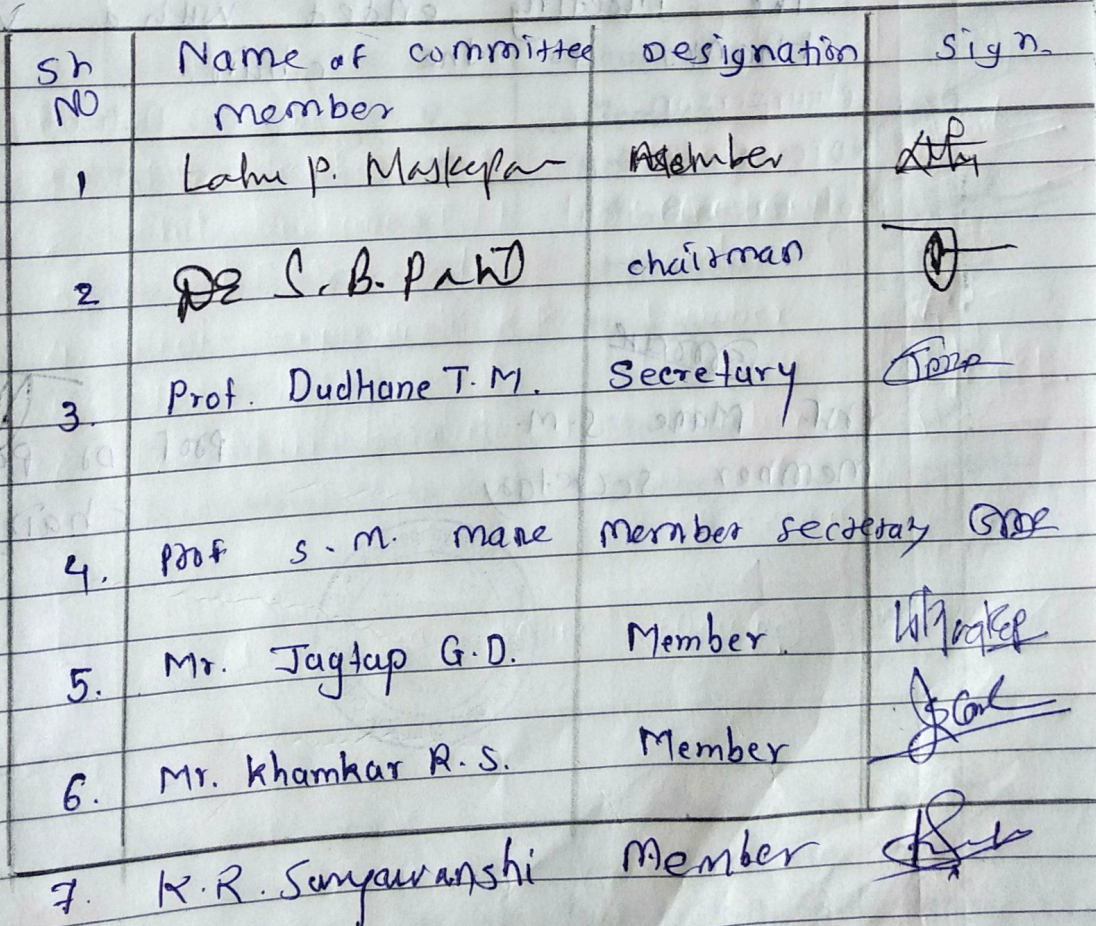 Sr Name of committee Designation Sign.
NO member
1 Lahu P. Member
2 Dr S. B. chairman
3. Prof. Dudhane T. M. Secretary
4. Prof S. M. mane member secretary
5. Mr. Jagtap G.D. Member
6. Mr. Khamkar R.S. Member
7. K.R. Suryawanshi Member